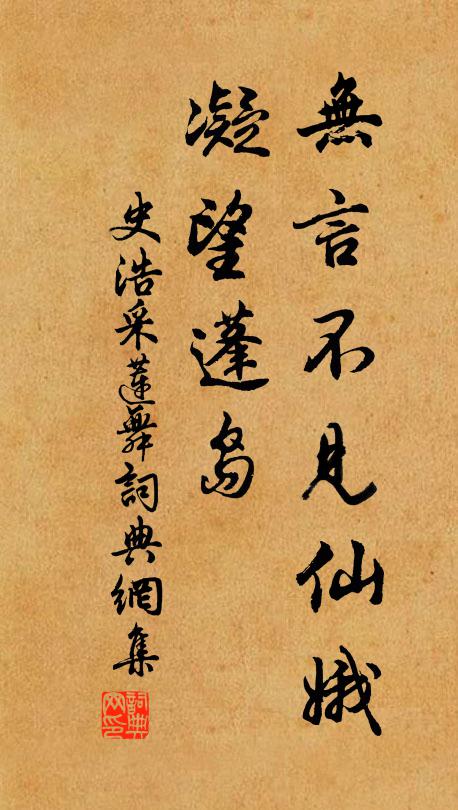 無言不見仙娥
凝望蓬島
史浩采蓮舞詞典網集
詞典網印